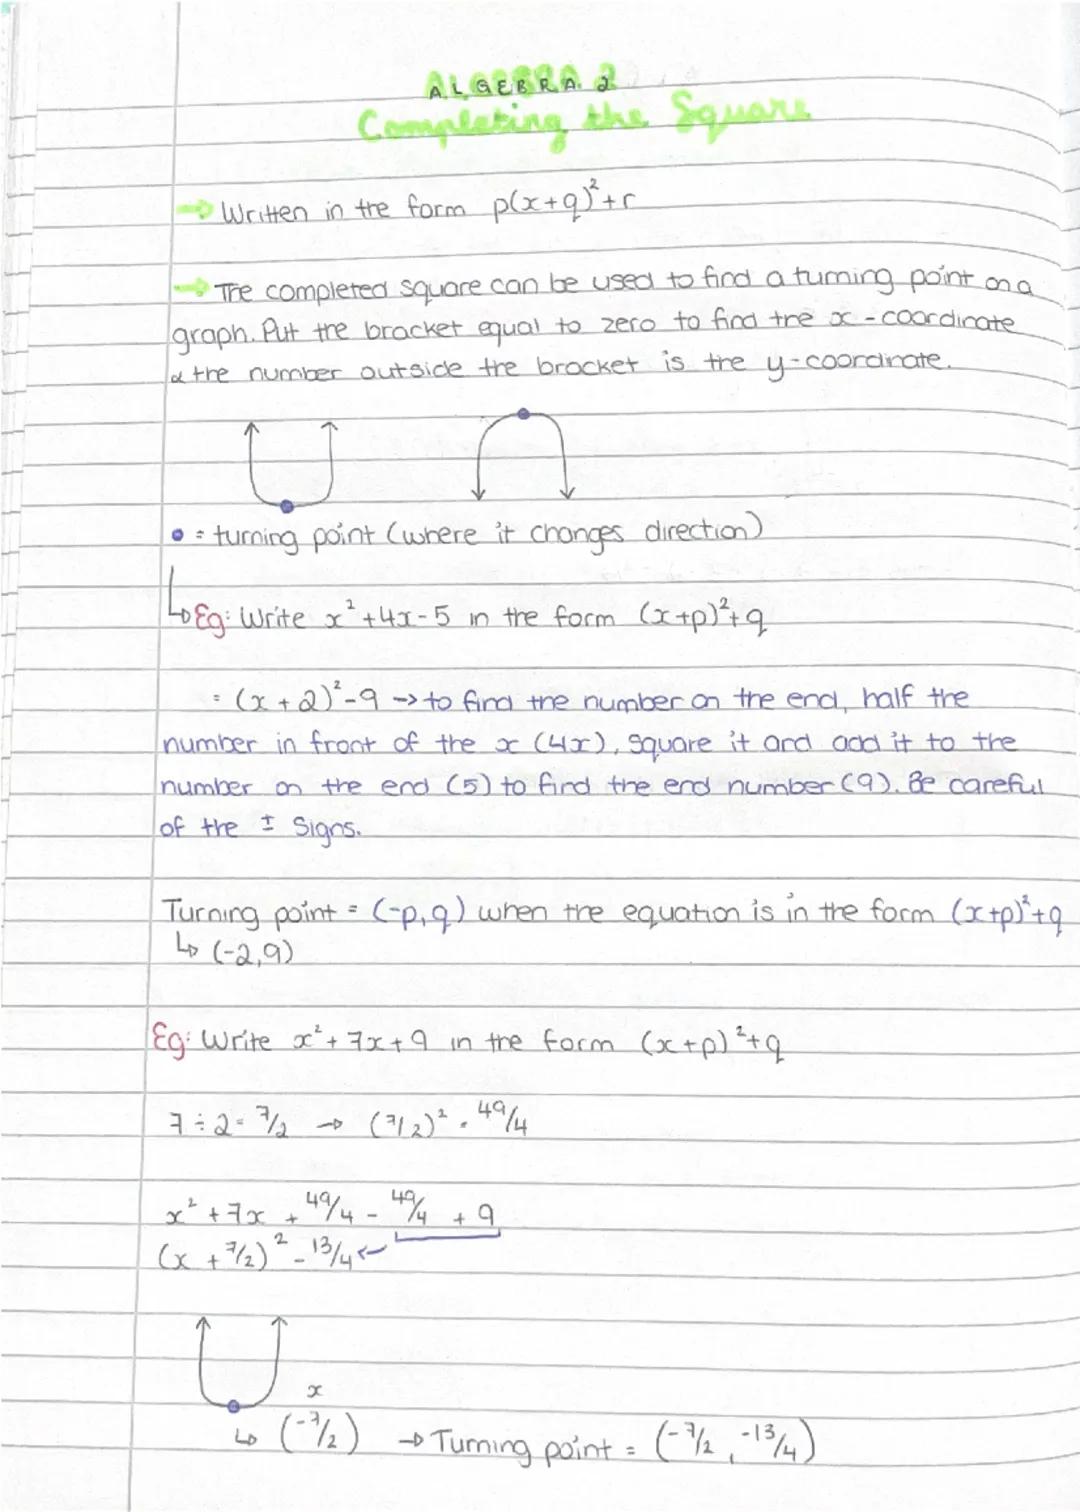 ALGEBRA 2
Completing the Square
→ Written in the form p(x+q)²+r
→ The completed square can be used to find a turning point on a
graph. Put the bracket equal to zero to find the x-coordinate
& the number outside the bracket is the y-coordinate.
• = turning point (where it changes direction)
↳ Eg: Write x²+4x-5 in the form (x+p)²+q
= (x+2)²-9 → to find the number on the end, half the
number in front of the x (4x), square it and add it to the
number on the end (5) to find the end number (9). Be careful
of the ± signs.
Turning point = (-p,q) when the equation is in the form (x+p)²+q
↳ (-2,9)
Eg: Write x²+7x+9 in the form (x+p)²+q
7÷2=7/2 → (7/2)² = 49/4
x²+7x+49/4-49/4+9
(x+7/2)²-13/4 ←
x
↳ (-7/2) → Turning point = (-7/2, -13/4)